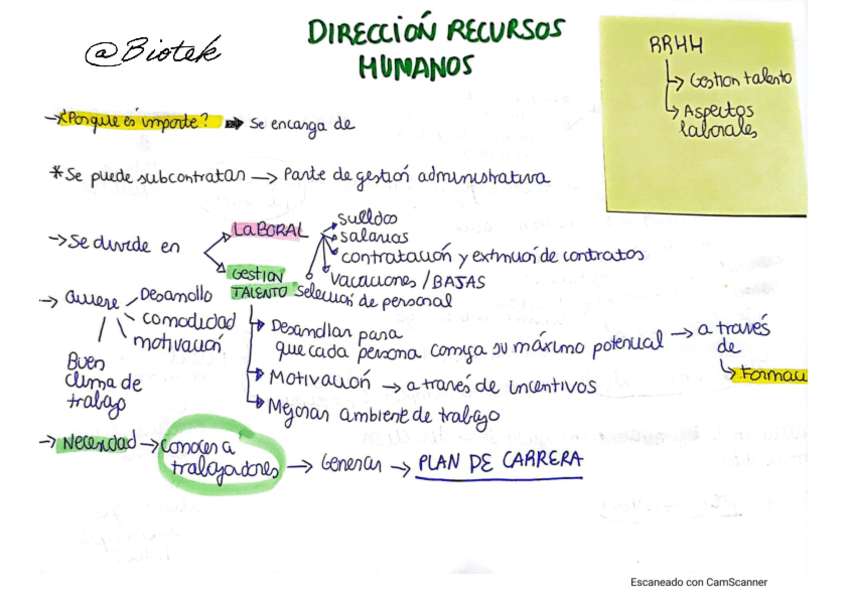 @Biotek
DIRECCIÓN RECURSOS
HUMANOS
RRHH
↳ Gestion talento
↳ Aspectos
laborales
→ *Porque es importe? ➡ Se encarga de
*Se puede subcontratar → Parte de gestión administrativa
→ Se divide en
LABORAL
sueldos
salarios
contratación y extinción de contratos
vacaciones / BAJAS
Selección de personal
GESTION
TALENTO
↳ Desarrollar para
que cada persona consiga su máximo potencial → a través
de
↳ Formaci
↳ Motivación → a través de incentivos
↳ Mejorar ambiente de trabajo
→ Quiere
Desarrollo
comodidad
motivación
Buen
clima de
trabajo
→ Necesidad → conocer a
trabajadores → Generar → PLAN DE CARRERA
Escaneado con CamScanner